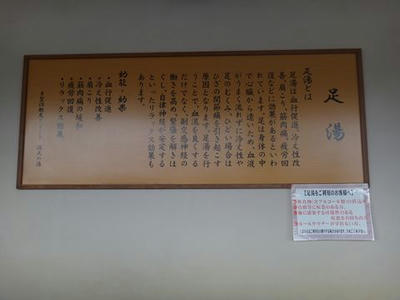 足湯
足湯とは
足湯は血行促進、冷え性改
善、肩こり、筋肉痛、疲労回
復などに効果があるといわ
れています。足は身体の中
で心臓から遠いため、血液
がうまく流れずに冷えや
足のむくみ、ひどい場合は
ひざの関節痛を引き起こす
原因となります。足湯を行
うことで、血流を良くする
だけでなく、副交感神経の
働きを高め、緊張を解きほ
ぐし、自律神経が安定する
といったリラックス効果も
あります。
効能・効果
・血行促進
・冷え性改善
・肩こり
・筋肉痛の緩和
・疲労回復
・リラックス効果
【足湯をご利用のお客様へ】